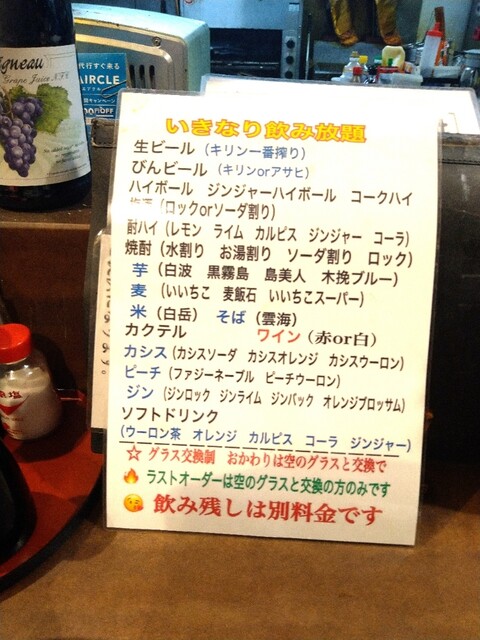 gneau
Grape Juice
代行すぐ来る
AIRCLE
いきなり飲み放題
生ビール（キリン一番搾り）
びんビール（キリンorアサヒ）
ハイボール ジンジャーハイボール コークハイ
（ロックorソーダ割り）
酎ハイ（レモン ライム カルピス ジンジャー コーラ）
焼酎（水割り お湯割り ソーダ割り ロック）
芋（白波 黒霧島 島美人 木挽ブルー）
麦（いいちこ 麦飯石 いいちこスーパー）
米（白岳） そば（雲海）
カクテル ワイン（赤or白）
カシス（カシスソーダ カシスオレンジ カシスウーロン）
ピーチ（ファジーネーブル ピーチウーロン）
ジン（ジンロック ジンライム ジンバック オレンジブロッサム）
ソフトドリンク
（ウーロン茶 オレンジ カルピス コーラ ジンジャー）
☆ グラス交換制 おかわりは空のグラスと交換で
🔥 ラストオーダーは空のグラスと交換の方のみです
😘 飲み残しは別料金です